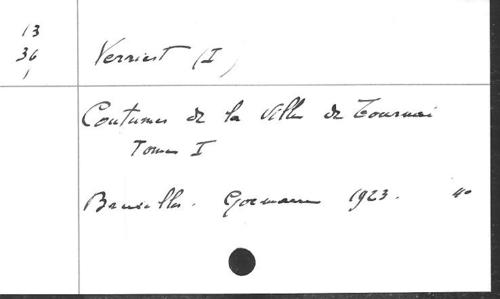 13
36
1
Verriest (I)
Coutumes de la Ville de Tournai
Tome I
Bruxelles. Goemaere 1923. 4°